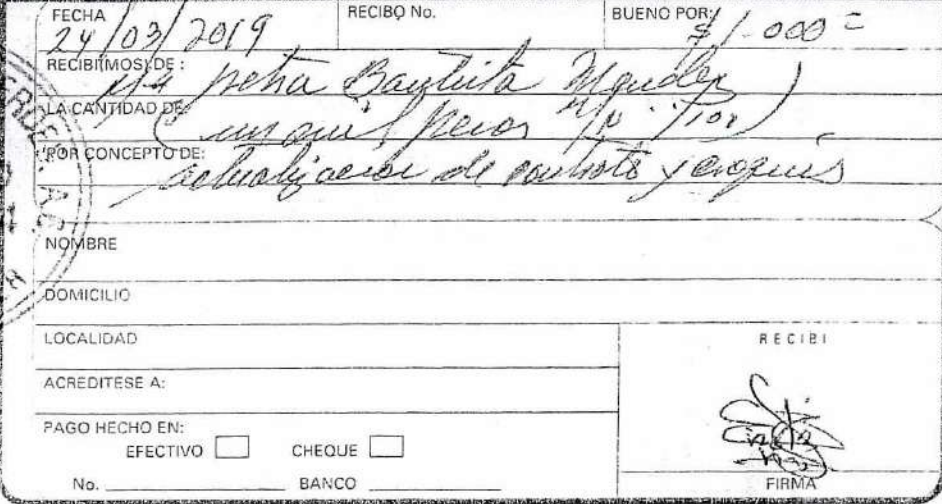 FECHA RECIBO No. BUENO POR:
24/03/2019 $1.000 =
RECIBI(MOS) DE:
Ma petra Bautista Mendez
LA CANTIDAD DE:
(un mil pesos M/N Por)
POR CONCEPTO DE:
actualizacion de contrato y croquis
NOMBRE
DOMICILIO
LOCALIDAD
RECIBI
ACREDITESE A:
PAGO HECHO EN:
EFECTIVO CHEQUE
No. BANCO
FIRMA
A.C.